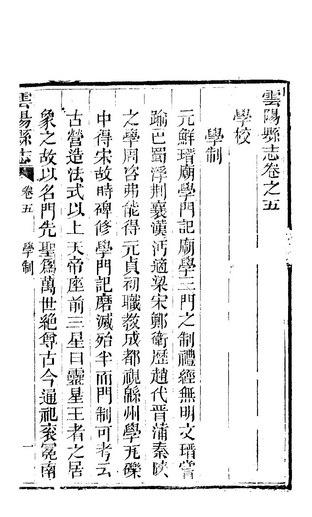 雲陽縣志卷之五
學校
學制
元鮮瑨廟學門記廟學三門之制禮經無明文瑨嘗
踰巴蜀浮荆襄漢沔適梁宋鄭衛歷趙代晉蒲秦陝
之學周咨弗能得元貞初職教成都視縣州學瓦礫
中得宋故時碑修學門記磨滅殆半而門制可考云
古營造法式以上天帝座前三星曰靈星王者之居
象之故以名門先聖爲萬世絕尊古今通祀袞冕南
雲陽縣志
卷五
學制
一